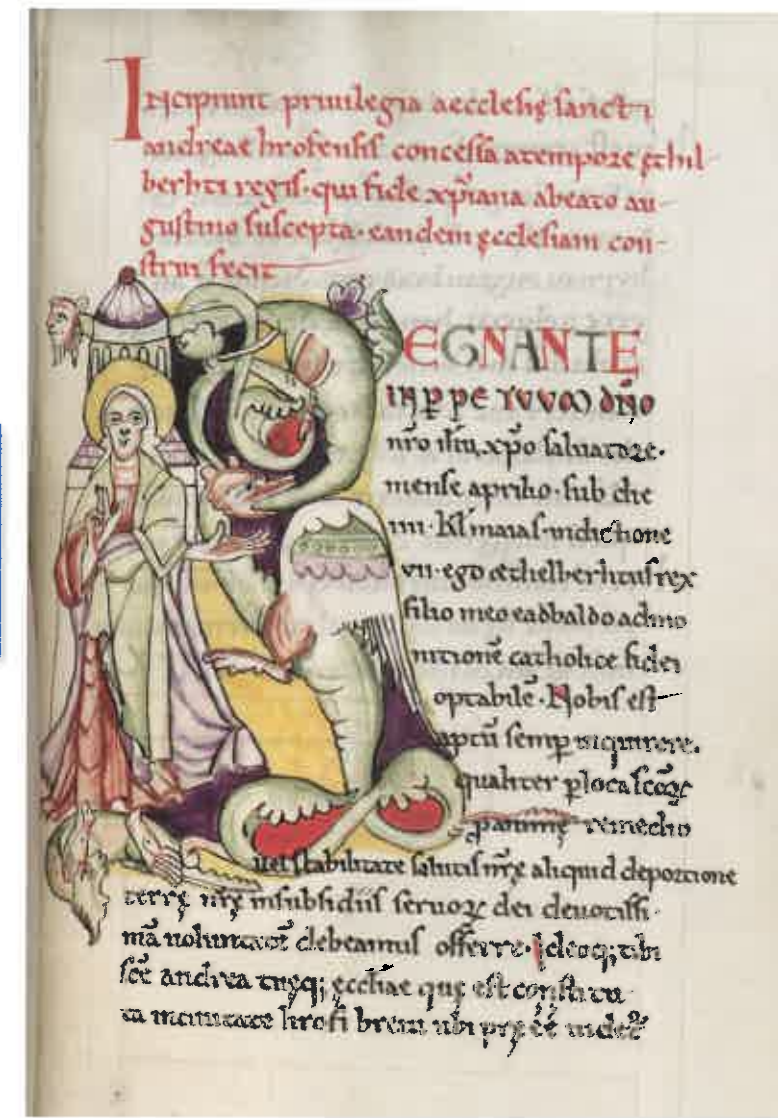 Incipiunt priuilegia aecclesię sancti
andreae hrofensis concessa a tempore ęthil-
berhti regis· qui fide xp̄iana a beato au-
gustino suscepta· eandem ęcclesiam con-
strui fecit
REGNANTE
IN P̲PETUUM dn̄o
nr̄o ih̄u xp̄o saluatore·
mense aprilio· sub die
iiii· kl̄ maias· indictione
vii· ego æthelberhtus rex
filio meo eadbaldo admo
nitionē catholice fidei
optabilē· Nobis est
aptū semp̲ inquirere.
qualiter p̲ loca scōꝝ
p animę remedio
uel stabilitate salutis nr̄ę aliquid de portione
terrę nr̄ę in subsidiis seruoꝝ dei deuotissi-
mā uoluntatē debeamus offerre· Ideoq; tibi
scē andrea tuęq; ęcclīae quę est constitu
ta in ciuitate hrofi breui ubi pręēē uidet᷑